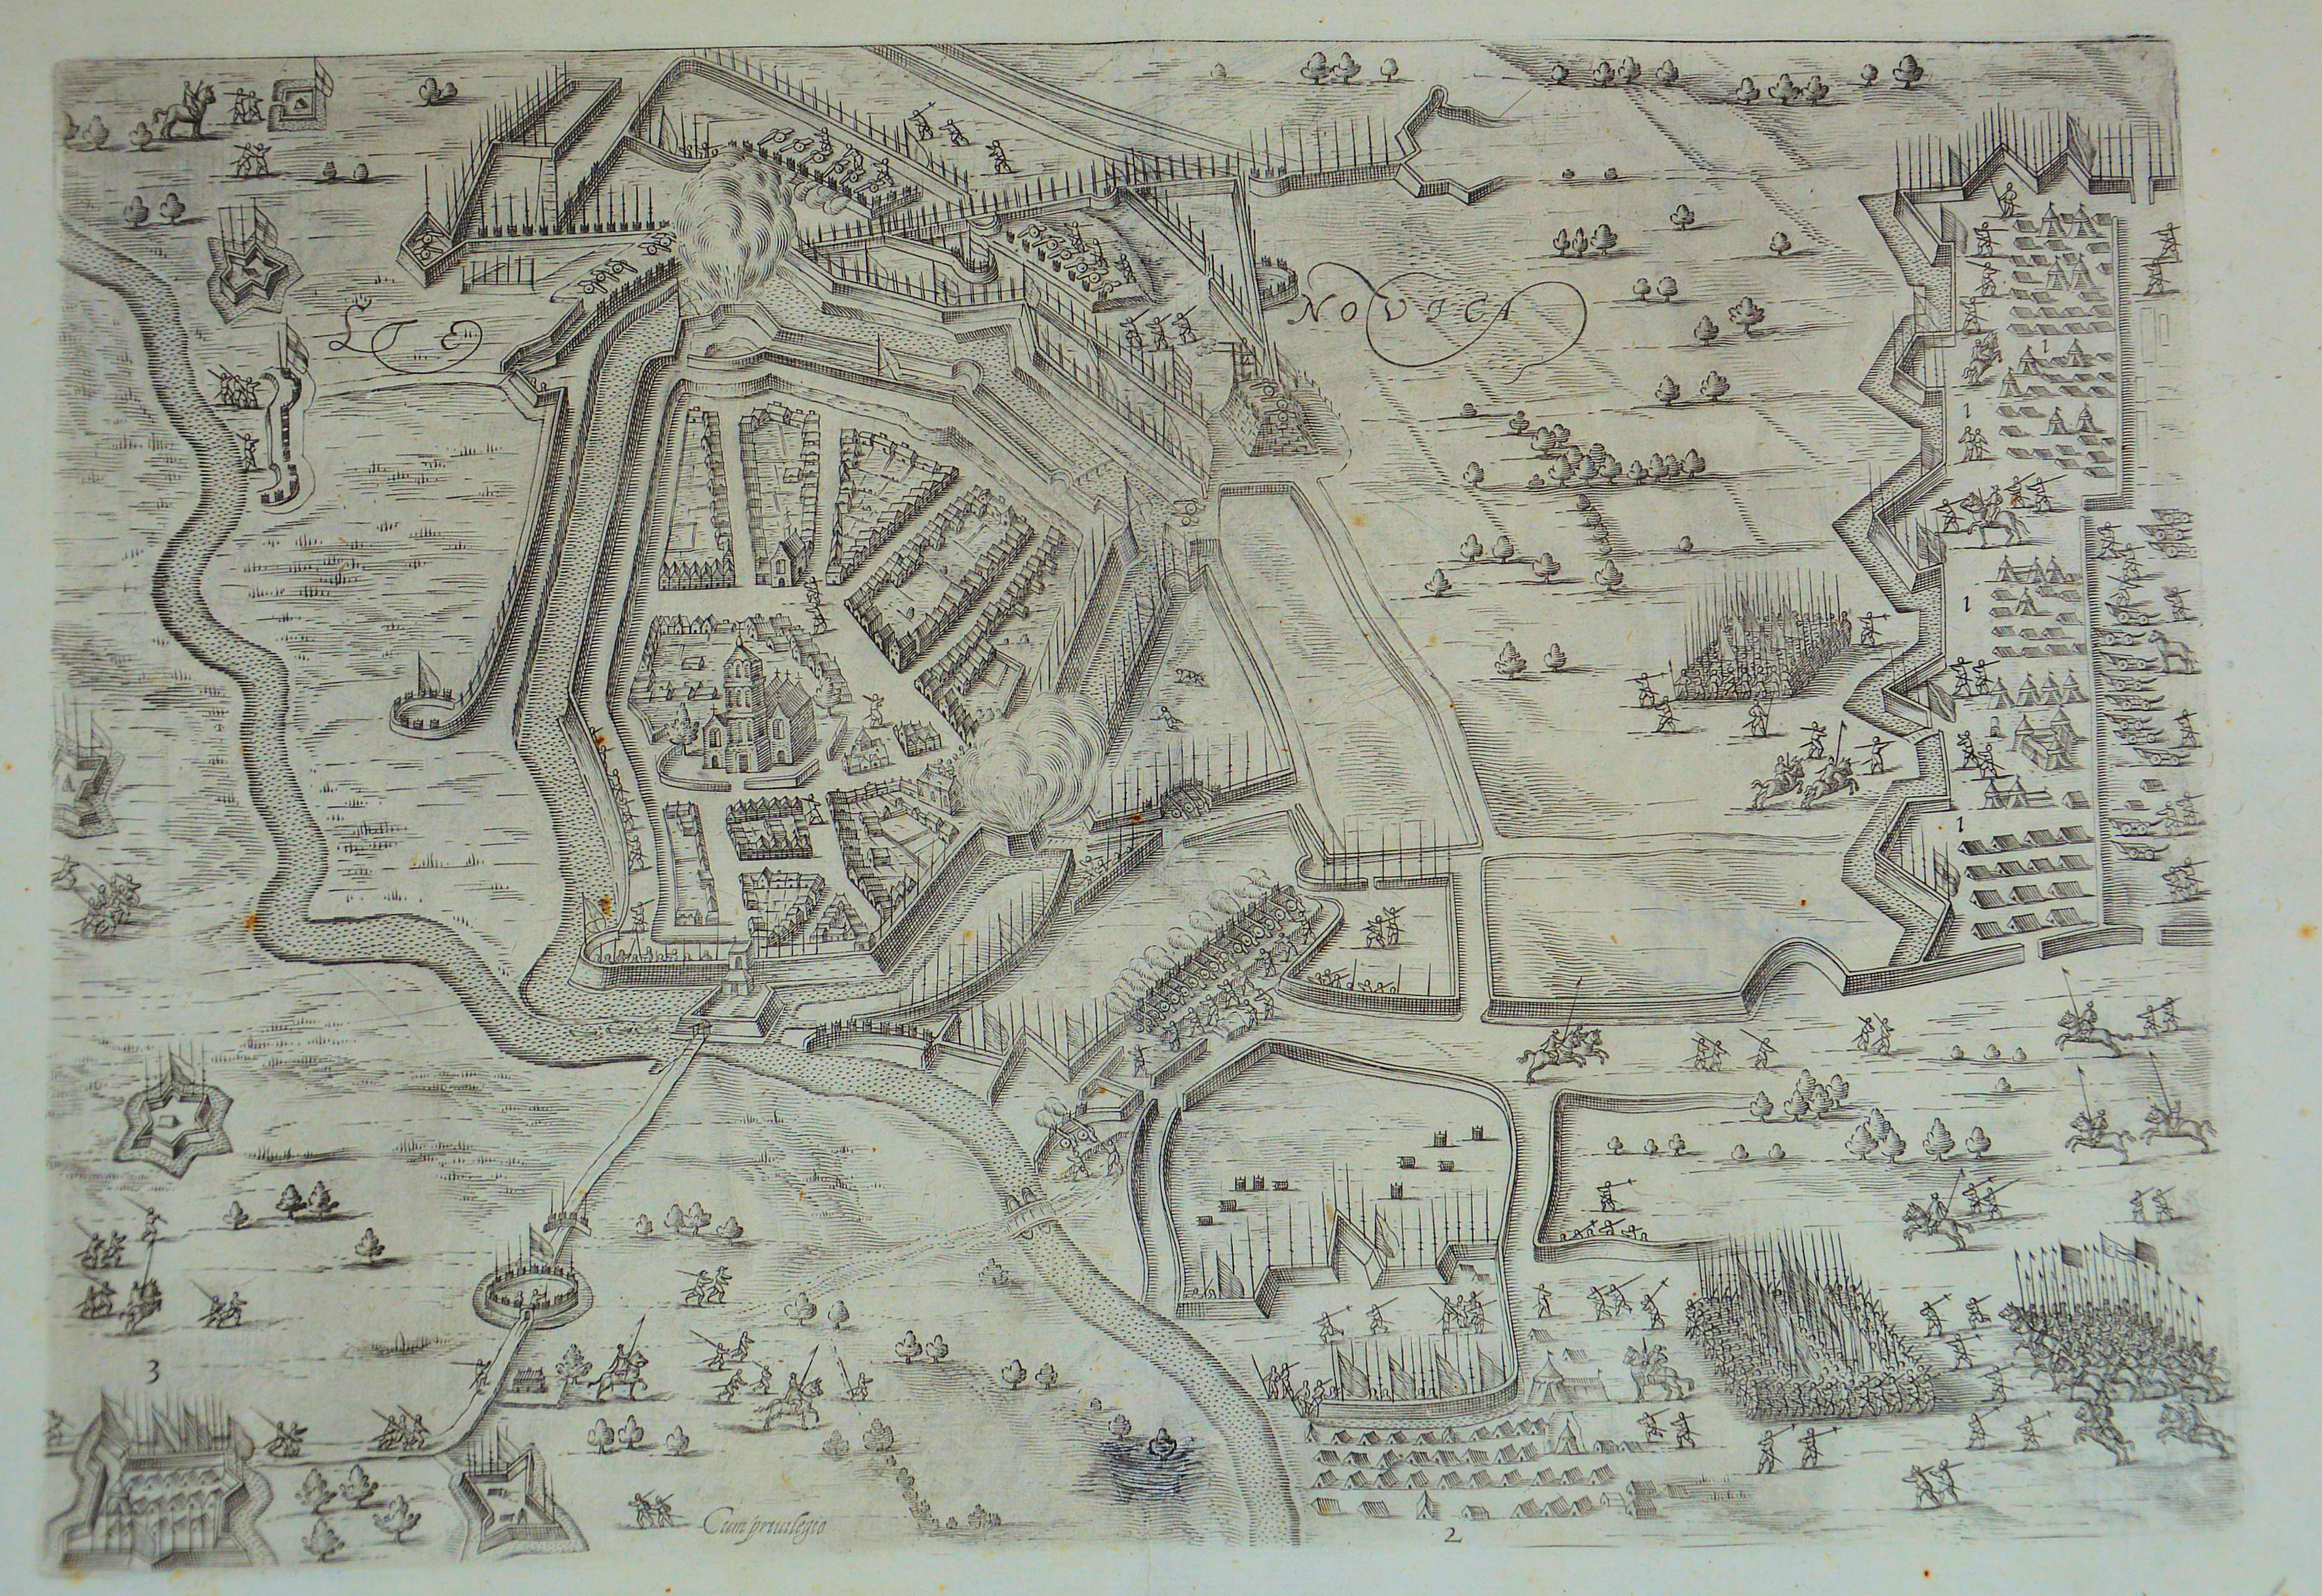 LTE
NOVICA
1
1
1
1
3
Cum priuilegio
2